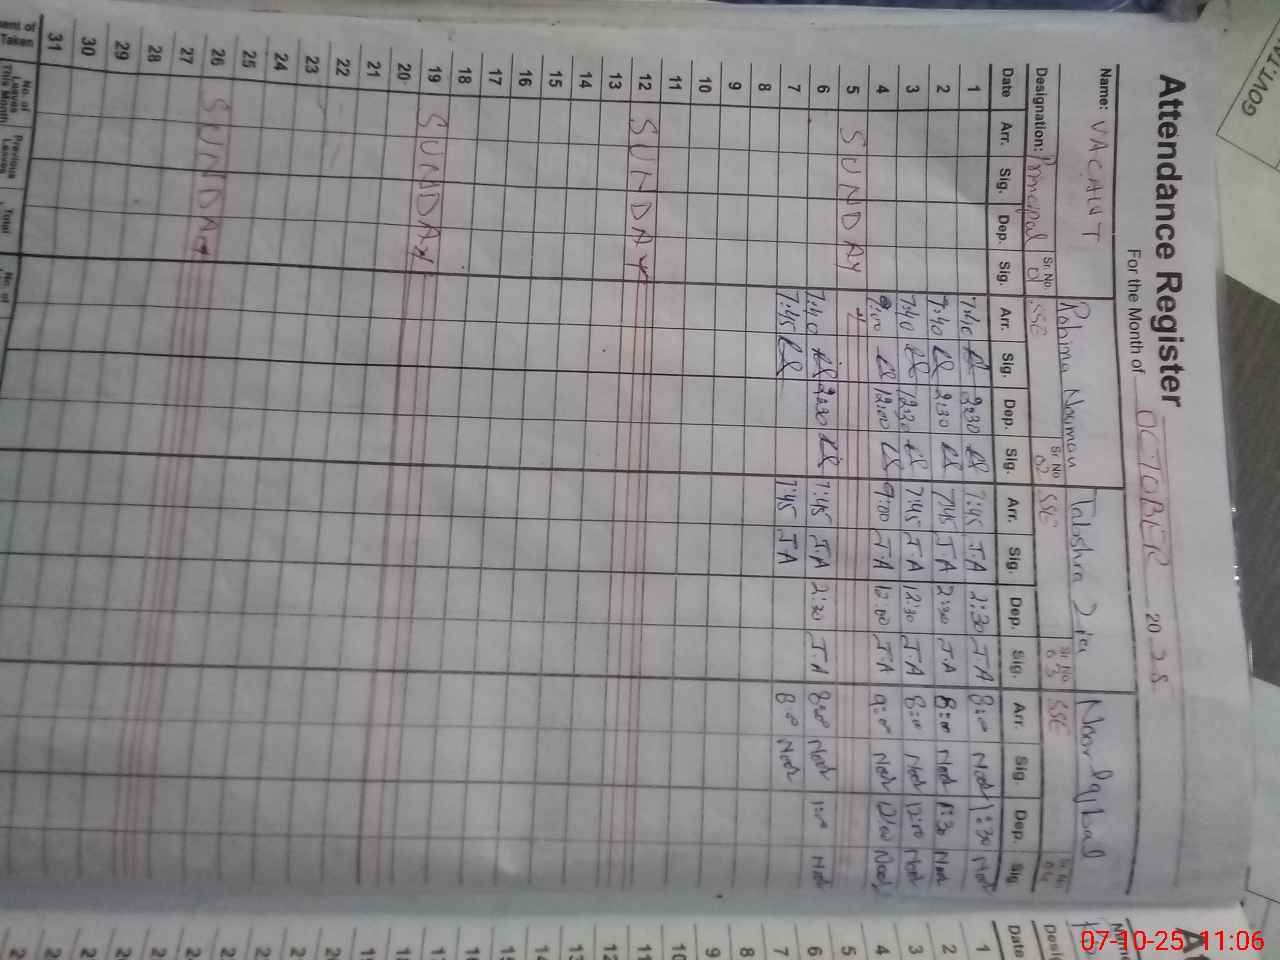 Attendance Register
For the Month of OCTOBER 2025
Name: VACANT Rahima Nouman Tabshra Zia Noor Iqbal
Designation: Principal Sr. No. 01 SSE Sr. No 02 SSE Sr. No. 03 SSE Sr. No. 04
Date Arr. Sig. Dep. Sig. Arr. Sig. Dep. Sig. Arr. Sig. Dep. Sig. Arr. Sig. Dep. Sig
1 7:40 2:30 7:45 J.A 2:30 J.A 8:00 Noor 1:30 Noor
2 7:40 2:30 7:45 J.A 2:30 J.A 8:00 Noor 1:30 Noor
3 7:40 12:30 7:45 J.A 12:30 J.A 8:00 Noor 12:00 Noor
4 9:00 12:00 9:00 J.A 12:00 J.A 9:00 Noor 12:00 Noor
5 SUNDAY
6 7:40 2:30 7:45 J.A 2:30 J.A 8:00 Noor 1:00 Noor
7 7:45 7:45 J.A 8:00 Noor
8
9
10
11
12 SUNDAY
13
14
15
16
17
18
19 SUNDAY
20
21
22
23
24
25
26 SUNDAY
27
28
29
30
31
No. of Leaves This Month Previous Leaves Total No. of
Taken
Date
1
2
3
4
5
6
7
8
9
10
11
12
13
14
15
16
17
18
07-10-25 11:06